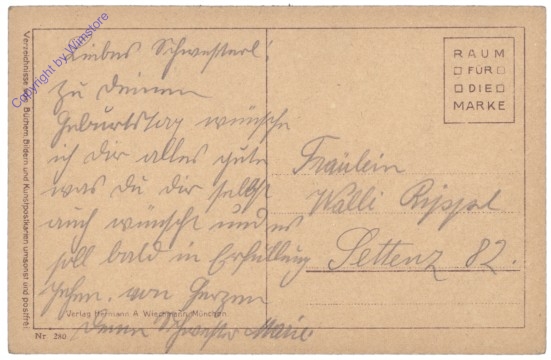 Liebes Schwesterl!
Zu Deinem
Geburtstag wünsche
ich Dir alles gute
was Du Dir selbst
auch wünscht und es
soll bald in Erfüllung
gehen. von Herzen
Deine Schwester Marie
RAUM
FÜR
DIE
MARKE
Fräulein
Walli
Settenz 82.
Verzeichnisse von Büchern, Bildern und Kunstpostkarten umsonst und postfrei
Verlag Hermann A. Wiechmann, München
Nr. 280
Copyright by Wimstore